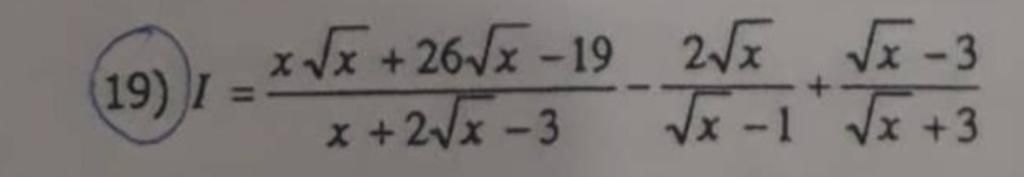 19) I = \frac{x\sqrt{x} + 26\sqrt{x} - 19}{x + 2\sqrt{x} - 3} - \frac{2\sqrt{x}}{\sqrt{x} - 1} + \frac{\sqrt{x} - 3}{\sqrt{x} + 3}